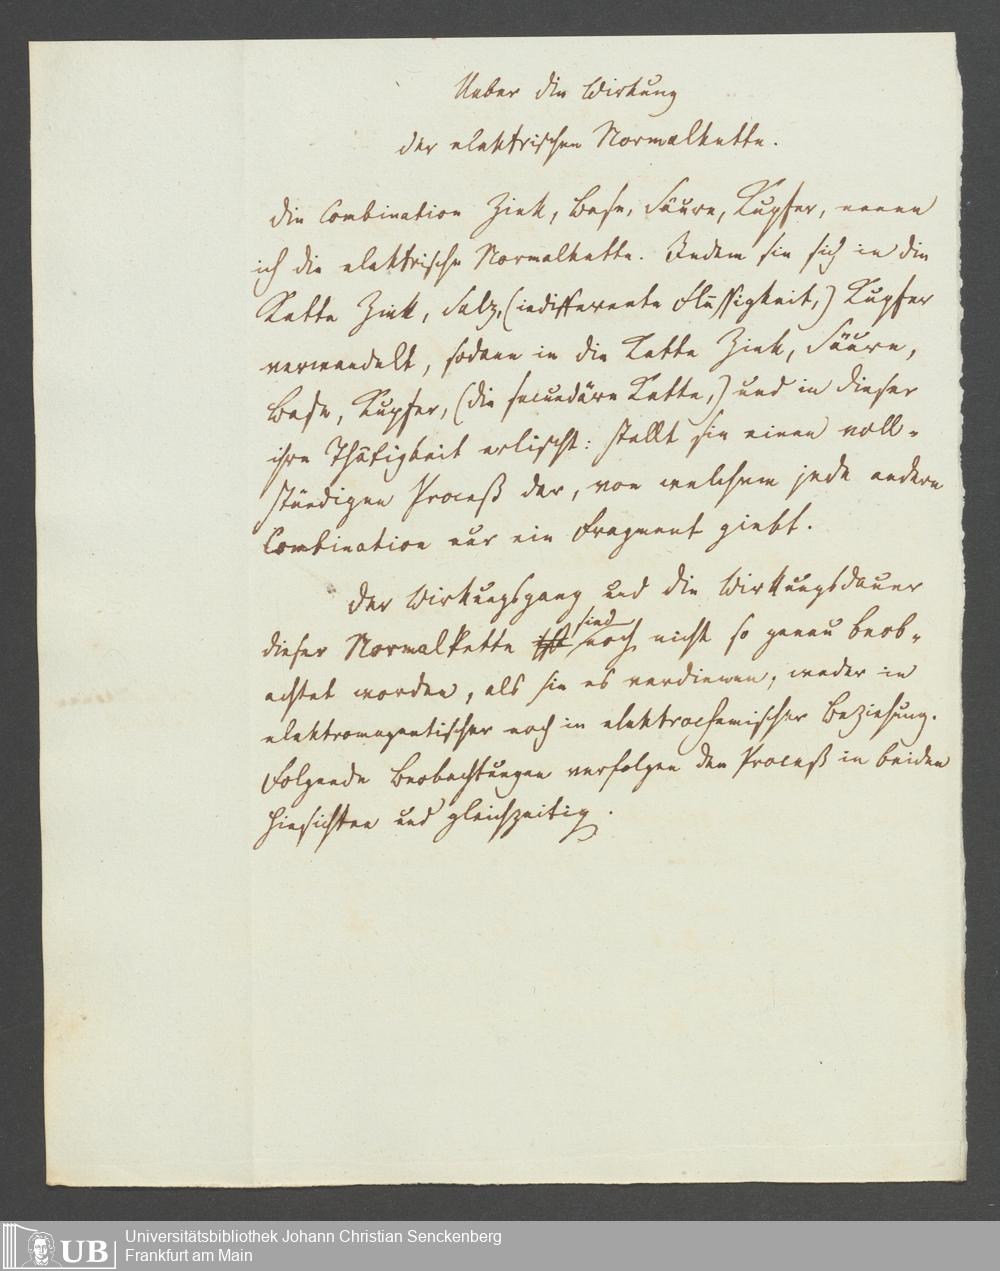 Ueber die Wirkung
der elektrischen Normalkette.
Die Combination Zink, Base, Säure, Kupfer, nenne
ich die elektrische Normalkette. Indem sie sich in die
Kette Zink, Salz, (indifferente Flüssigkeit,) Kupfer
verwandelt, sodann in die Kette Zink, Säure,
Base, Kupfer, (die secundäre Kette,) und in dieser
ihre Thätigkeit erlischt: stellt sie einen voll-
ständigen Proceß dar, von welchem jede andere
Combination nur ein Fragment giebt.
Der Wirkungsgang und die Wirkungsdauer
sind
dieser Normalkette ist noch nicht so genau beob-
achtet worden, als sie es verdienen, weder in
elektromagnetischer noch in elektrochemischer Beziehung.
Folgende Beobachtungen verfolgen den Proceß in beiden
Hinsichten und gleichzeitig.
UB
Universitätsbibliothek Johann Christian Senckenberg
Frankfurt am Main